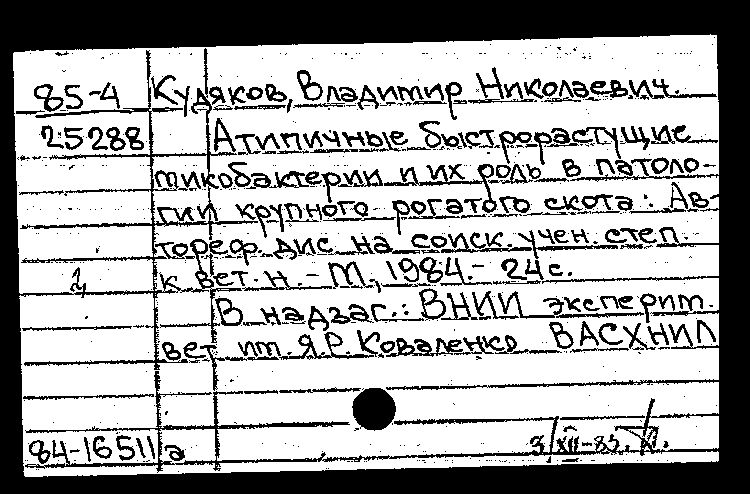 85-4 Кудяков, Владимир Николаевич.
25288 Атипичные быстрорастущие
микобактерии и их роль в патоло-
гии крупного рогатого скота: Ав-
тореф. дис на соиск. учен. степ.
к вет. н. - М., 1984. - 24 с.
В надзаг.: ВНИИ эксперим.
вет им. Я.Р. Коваленко ВАСХНИЛ
84-16511 а